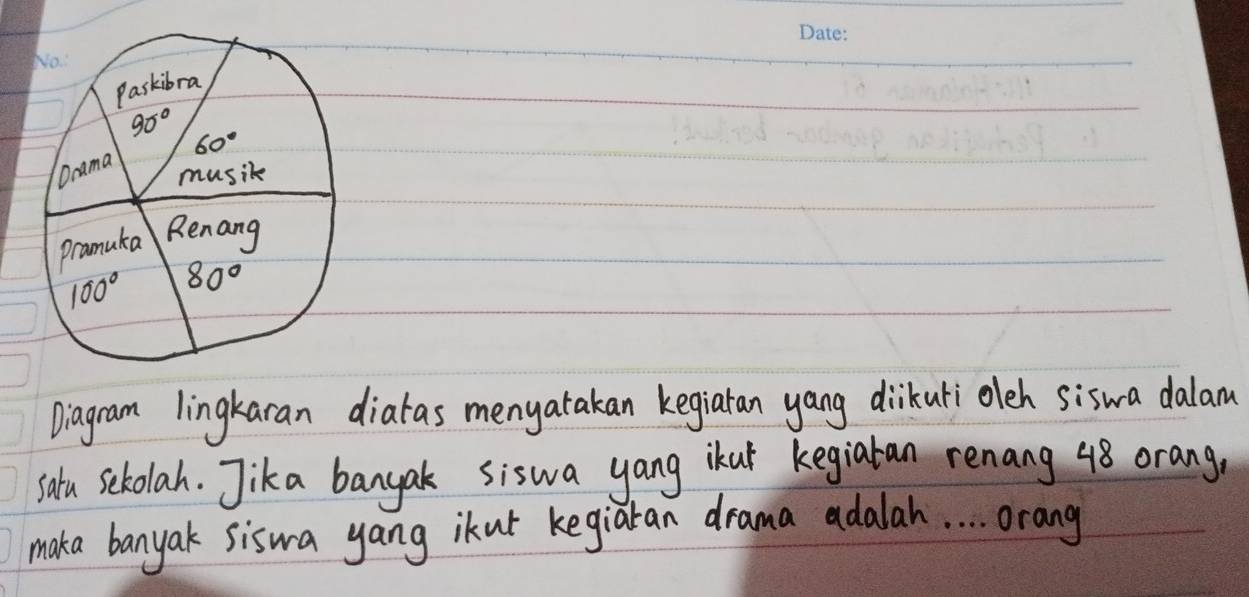 No.:
Date:
Paskibra
90°
60°
musik
Drama
Pramuka
100°
Renang
80°
Diagram lingkaran diatas menyatakan kegiatan yang diikuti oleh siswa dalam
satu sekolah. Jika banyak siswa yang ikut kegiatan renang 48 orang,
maka banyak siswa yang ikut kegiatan drama adalah .... orang